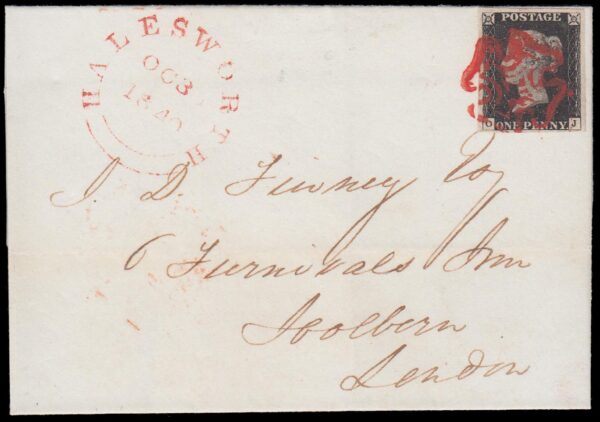 HALESWORTH
OC 3
1840
POSTAGE
ONE PENNY
O J
J. D. Finney Esq
6 Furnivals Inn
Holborn
London